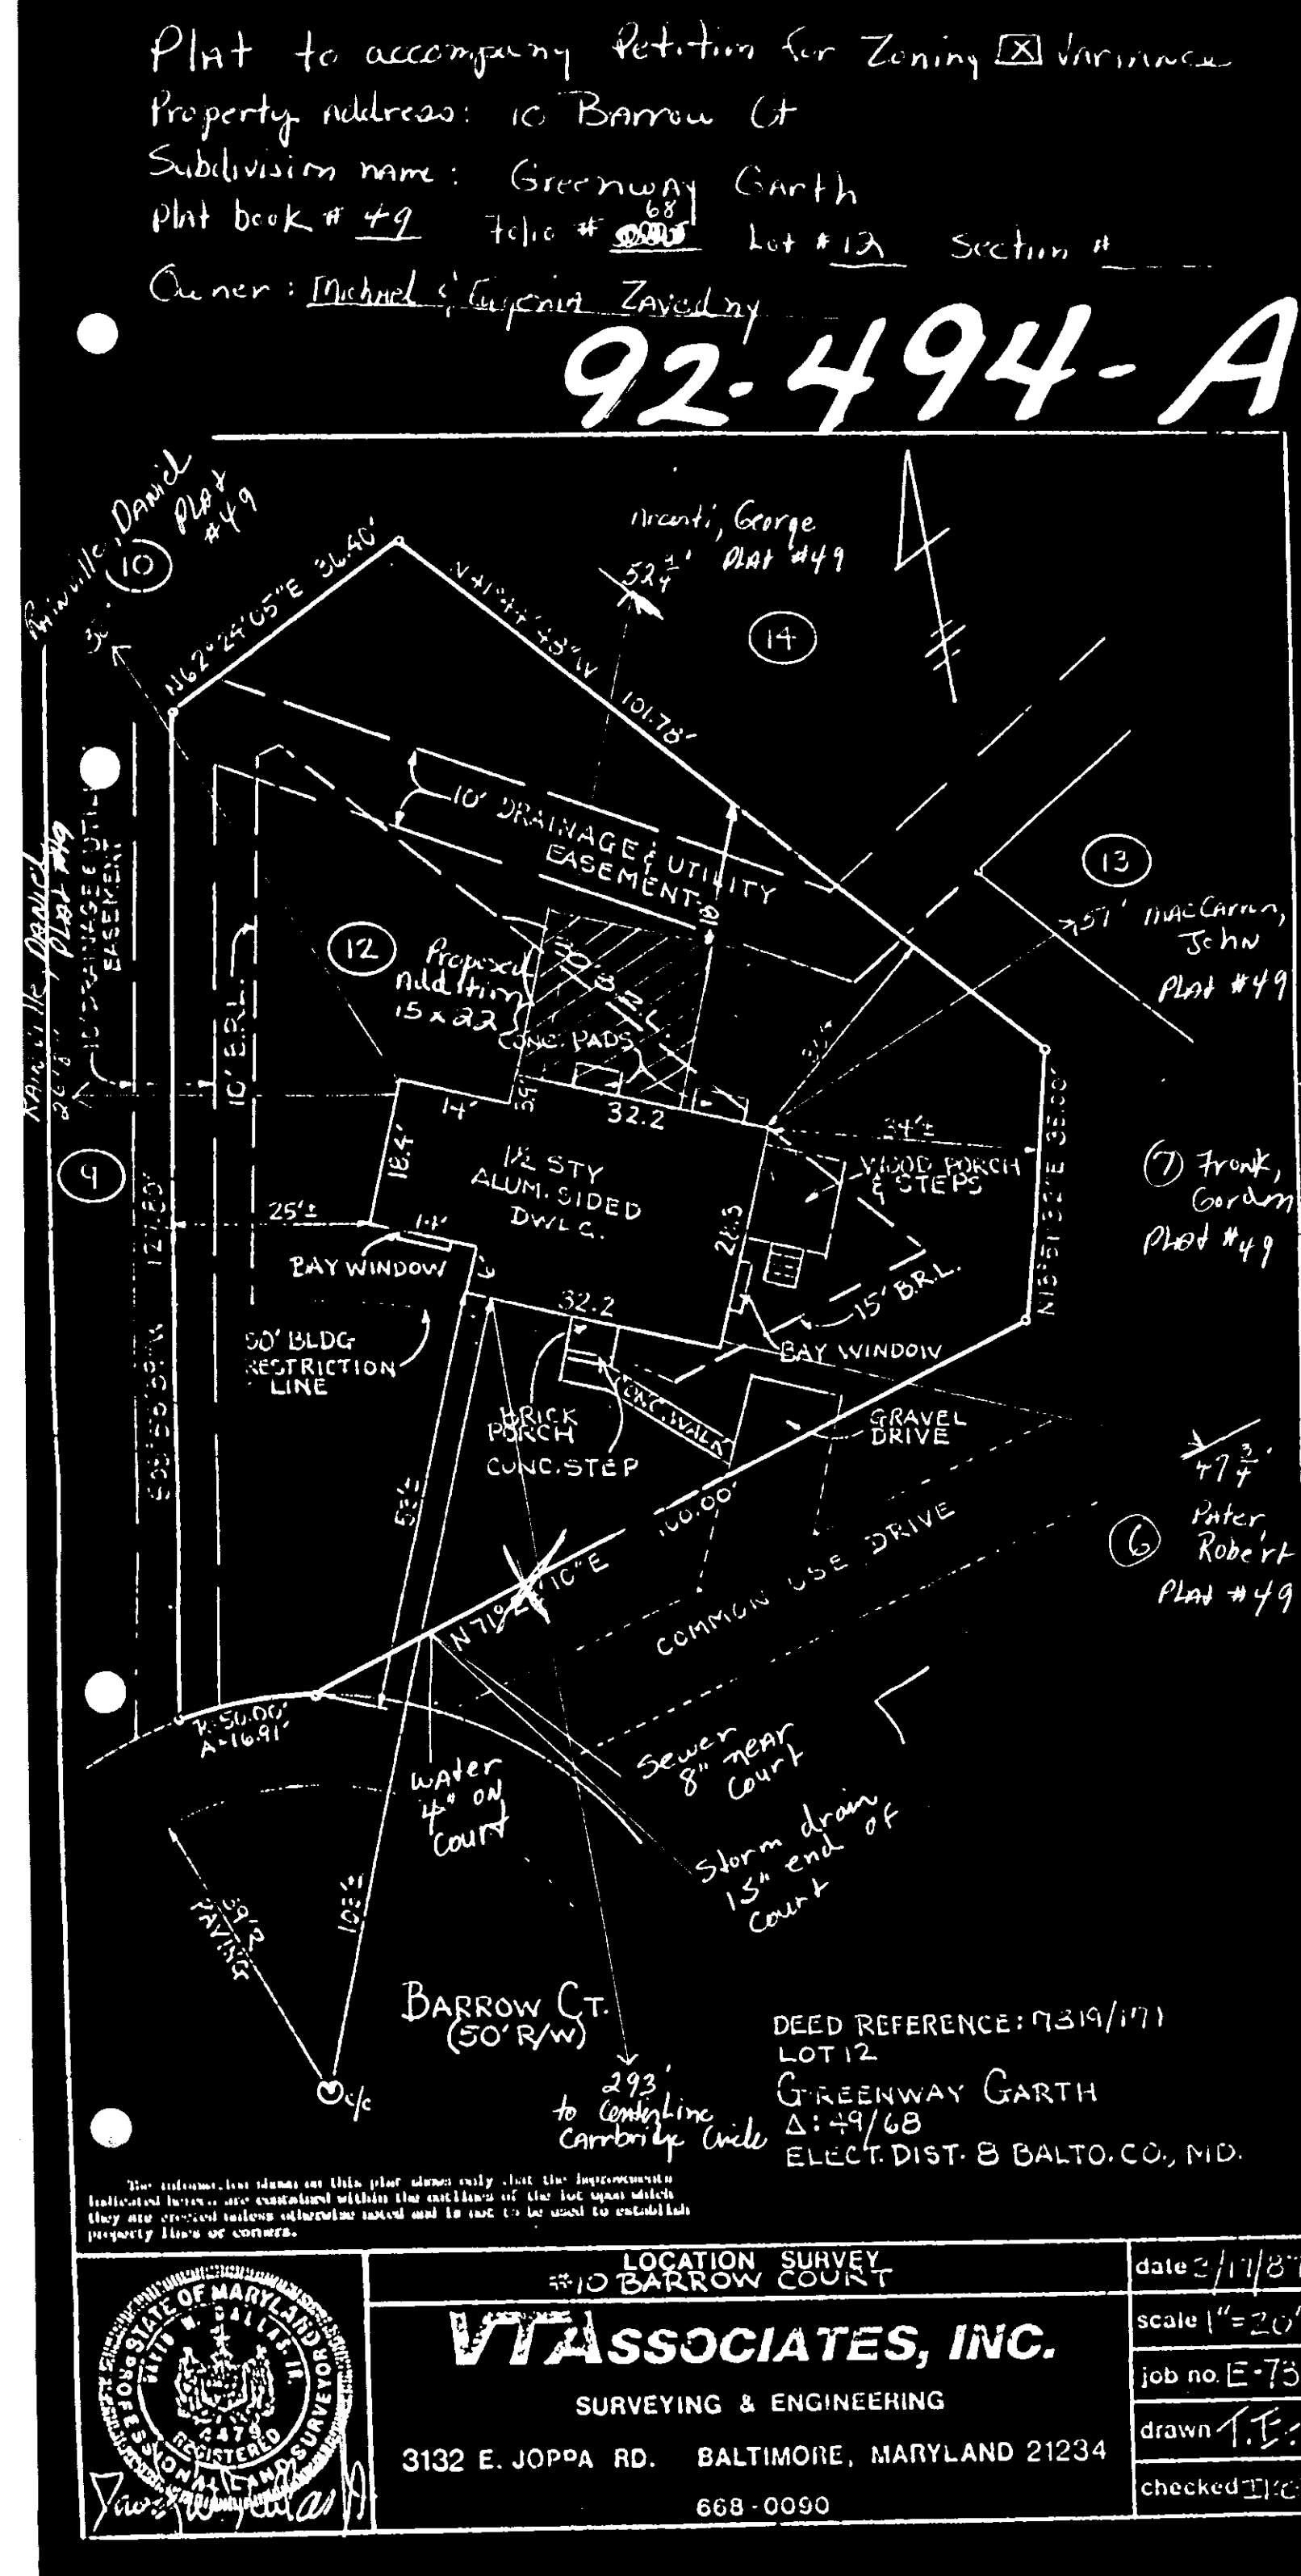 Plat to accompany Petition for Zoning X Variance
Property Address: 10 Barrow Ct
Subdivision name: Greenway Garth
Plat book # 49 Folio # 68 Lot # 12 Section #
Owner: Michael & Eugenia Zavodny
92-494-A
Rainville, Daniel
Plat
#49
10
N62°24'05"E 36.40'
N41°44'48"W 101.78'
George
Plat #49
52 1/4'
14
13
57' MacCarron,
John
Plat #49
10' DRAINAGE & UTILITY
EASEMENT
Daniel
Plat #49
10' DRAINAGE & UTIL.
EASEMENT
10' B.R.L.
12
Proposed
Addition
15 x 22
30' B.R.L.
CONC. PADS
14'
32.2
18.4'
1½ STY
ALUM. SIDED
DWLG.
34'±
WOOD PORCH
& STEPS
9
25'±
14'
BAY WINDOW
32.2
15' B.R.L.
BAY WINDOW
50' BLDG
RESTRICTION
LINE
BRICK
PORCH
CONC. STEP
CONC. WALK
GRAVEL
DRIVE
7 Fronk,
Gordon
Plat #49
47 3/4'
6
Pater,
Robert
Plat #49
100.00'
COMMON USE DRIVE
R=50.00'
A=16.91'
Water
4" on
Court
Sewer
8" near
Court
Storm drain
15" end of
Court
39'R
PAVING
103'±
BARROW CT.
(50' R/W)
c/c
293'
to Centerline
Cambridge Circle
DEED REFERENCE: 7319/171
LOT 12
GREENWAY GARTH
Δ: 49/68
ELECT. DIST. 8 BALTO. CO., MD.
The information shown on this plat shows only that the improvements
indicated hereon are contained within the outlines of the lot upon which
they are erected unless otherwise noted and is not to be used to establish
property lines or corners.
STATE OF MARYLAND
PROFESSIONAL LAND SURVEYOR
REGISTERED
LOCATION SURVEY
#10 BARROW COURT
VTASSOCIATES, INC.
SURVEYING & ENGINEERING
3132 E. JOPPA RD. BALTIMORE, MARYLAND 21234
668-0090
date 3/17/87
scale 1"=20'
job no. E-73
drawn T.E.
checked